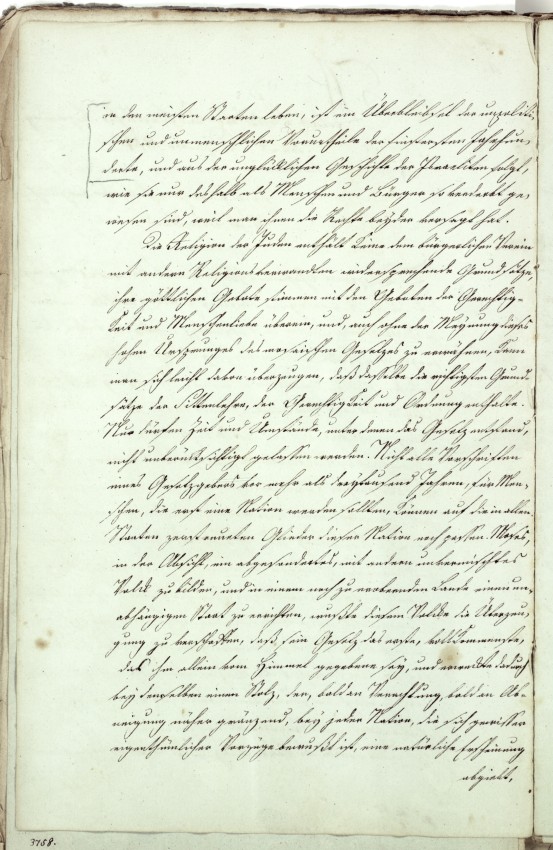 in den meisten Staaten leben, ist ein Überbleibsel der unpoliti-
schen und unmenschlichen Vorurtheile der finstersten Jahrhun-
derte, und aus der unglücklichen Geschichte der Israeliten folgt,
wie sie nur deshalb als Menschen und Bürger so verderbt ge-
wesen sind, weil man ihnen die Rechte beyder versagt hat.
Die Religion der Juden enthält keine dem bürgerlichen Verein
mit andern Religionsverwandten widersprechende Grundsätze,
ihre göttlichen Gebote stimmen mit den Geboten der Gerechtig-
keit und Menschenliebe überein, und, auch ohne der Meynung dieses
hohen Ursprunges des mosaischen Gesetzes zu erwähnen, kann
man sich leicht davon überzeugen, daß dasselbe die richtigsten Grund-
sätze der Sittenlehre, der Gerechtigkeit und Ordnung enthalte.
Nur dürfen Zeit und Umstände, unter denen das Gesetz entstand,
nicht unberücksichtigt gelassen werden. Nicht alle Vorschriften
eines Gesetzgebers vor mehr als dreytausend Jahren, für Men-
schen, die erst eine Nation werden sollten, können auf die in allen
Staaten zerstreueten Glieder dieser Nation noch passen. Moses,
in der Absicht, ein abgesondertes, mit andern unvermischtes
Volk zu bilden, und in einem noch zu erobernden Lande einen un-
abhängigen Staat zu errichten, mußte diesem Volke die Überzeu-
gung zu verschaffen, daß sein Gesetz das erste, vollkommenste,
das ihm allein vom Himmel gegebene sey, und erweckte dadurch
bey demselben einen Stolz, der, bald an Verachtung bald an Ab-
neigung näher gränzend, bey jeder Nation, die sich gewisser
eigenthümlicher Vorzüge bewußt ist, eine natürliche Erscheinung
abgiebt,
3758.